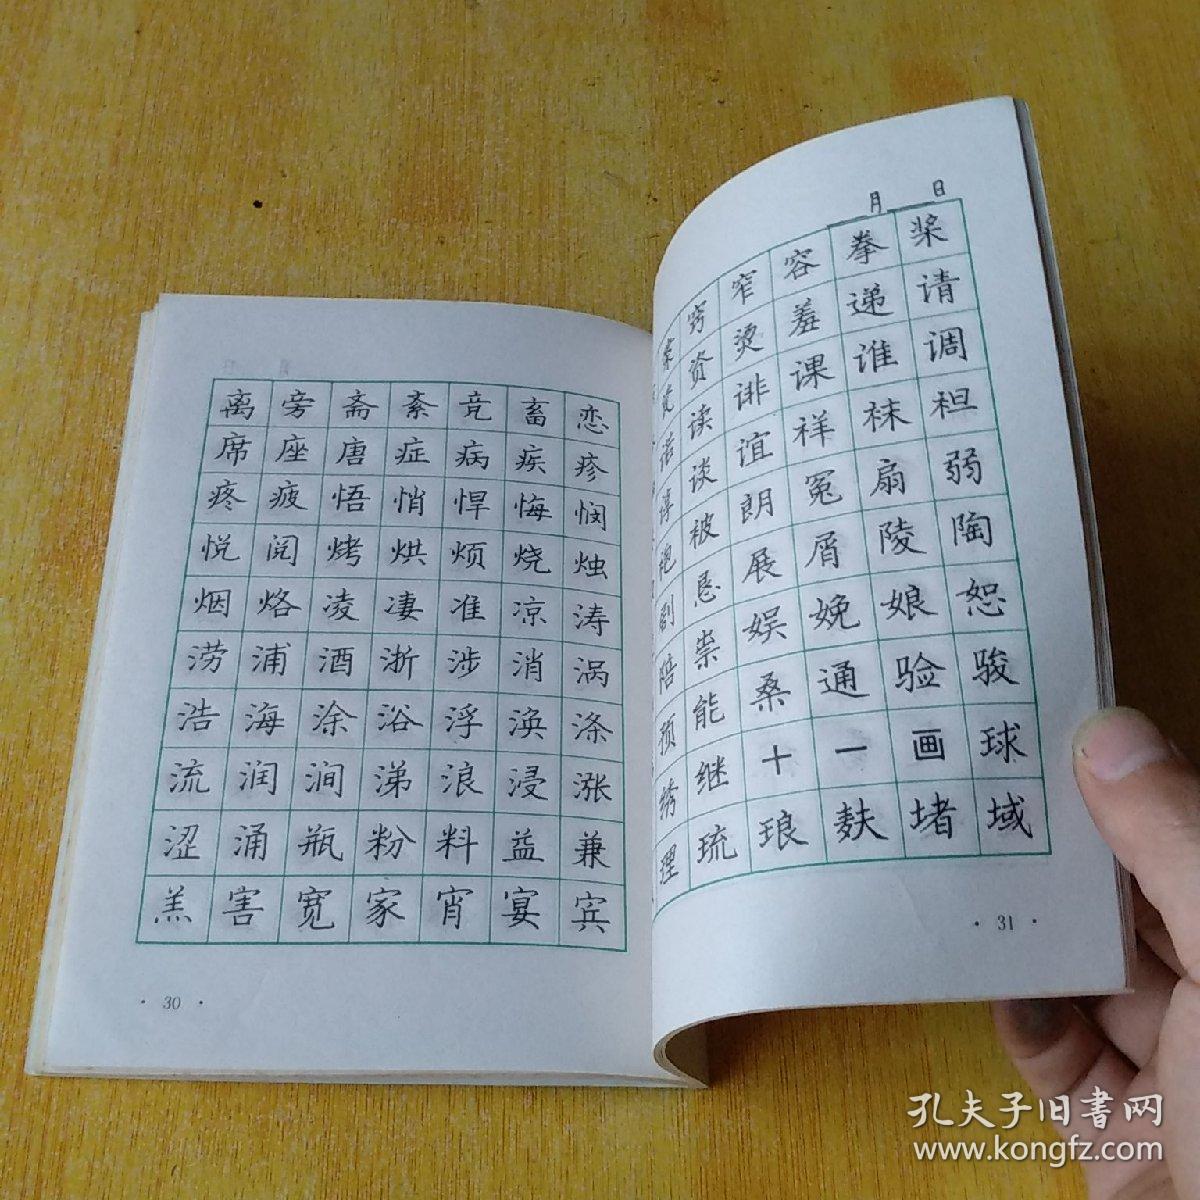 离旁斋紊竞畜恋
席座唐症病疾疹
疼疲悟悄悍悔悯
悦阅烤烘烦烧烛
烟烙凌凄准凉涛
涝浦酒浙涉消涡
浩海涂浴浮涣涤
流润涧涕浪浸涨
涩涌瓶粉料益兼
羔害宽家宵宴宾
· 30 ·
月 日
案窍窄容拳桨
资烫羞递请
诺读诽课谁调
谆谈谊祥袜袒
袍被朗冤扇弱
剧恳展屑陵陶
陪祟娱娩娘恕
预能桑通验骏
绣继十一画球
理琉琅麸堵域
· 31 ·
孔夫子旧书网
www.kongfz.com